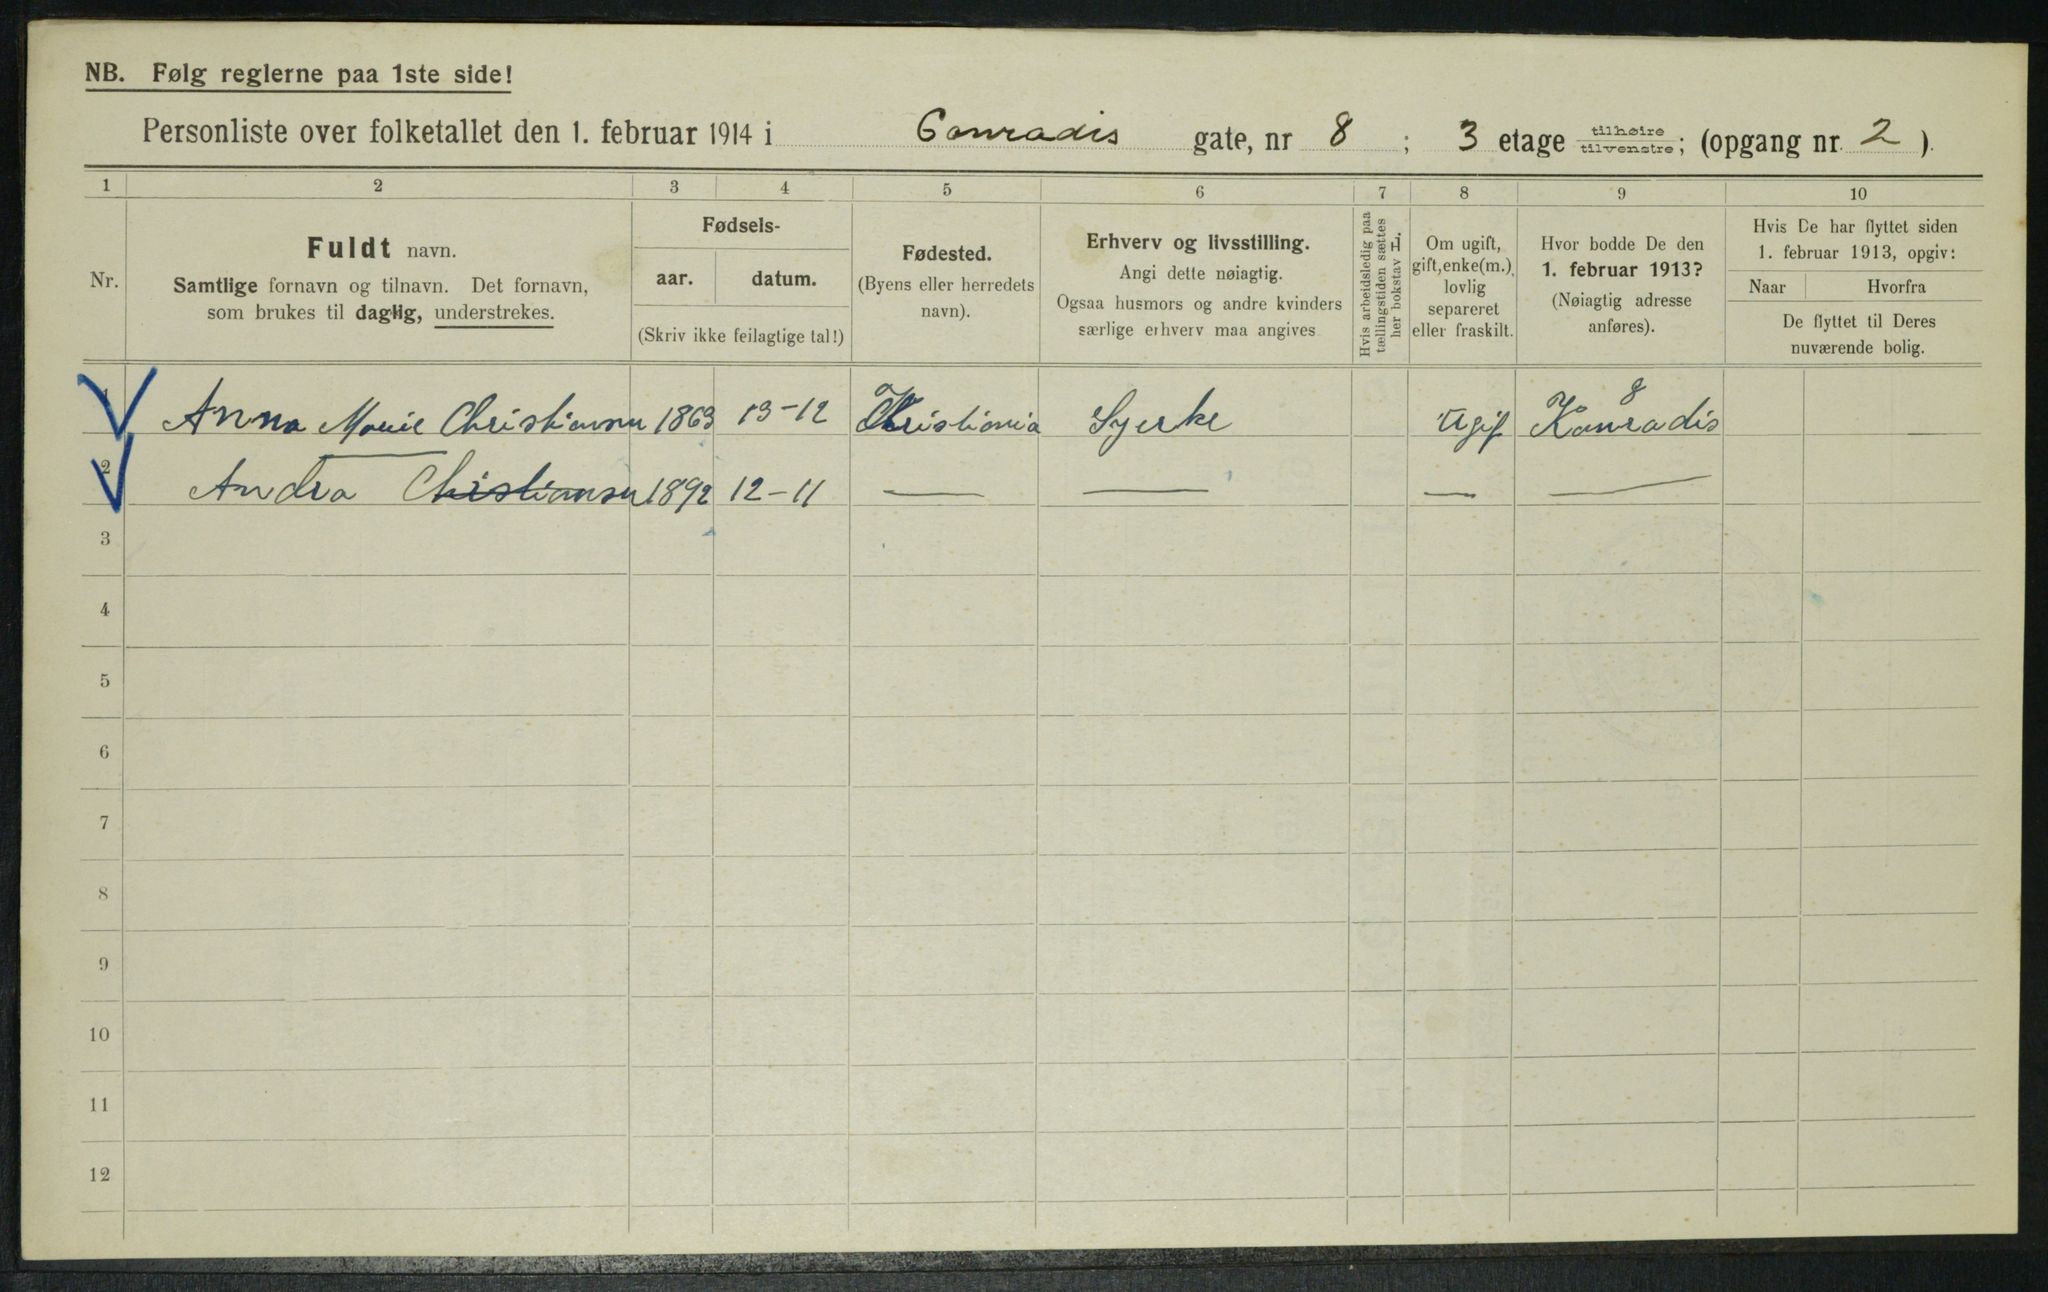 NB. Følg reglerne paa 1ste side!
Personliste over folketallet den 1. februar 1914 i Conradis gate, nr 8 ; 3 etage tilhøire tilvenstre; (opgang nr. 2 ).
1 2 3 4 5 6 7 8 9 10
Nr.
Fuldt navn.
Samtlige fornavn og tilnavn. Det fornavn,
som brukes til daglig, understrekes.
Fødsels-
aar. datum.
(Skriv ikke feilagtige tal!)
Fødested.
(Byens eller herredets
navn).
Erhverv og livsstilling.
Angi dette nøiagtig.
Ogsaa husmors og andre kvinders
særlige erhverv maa angives
Hvis arbeidsledig paa
tællingstiden sættes
her bokstav L.
Om ugift,
gift, enke(m.),
lovlig
separeret
eller fraskilt.
Hvor bodde De den
1. februar 1913?
(Nøiagtig adresse
anføres).
Hvis De har flyttet siden
1. februar 1913, opgiv:
Naar Hvorfra
De flyttet til Deres
nuværende bolig.
1 Anna Marie Christiansen 1863 13-12 Kristiania Syerke Ugif Konradis 8
2 Andra Christiansen 1892 12-11 — — — —
3
4
5
6
7
8
9
10
11
12